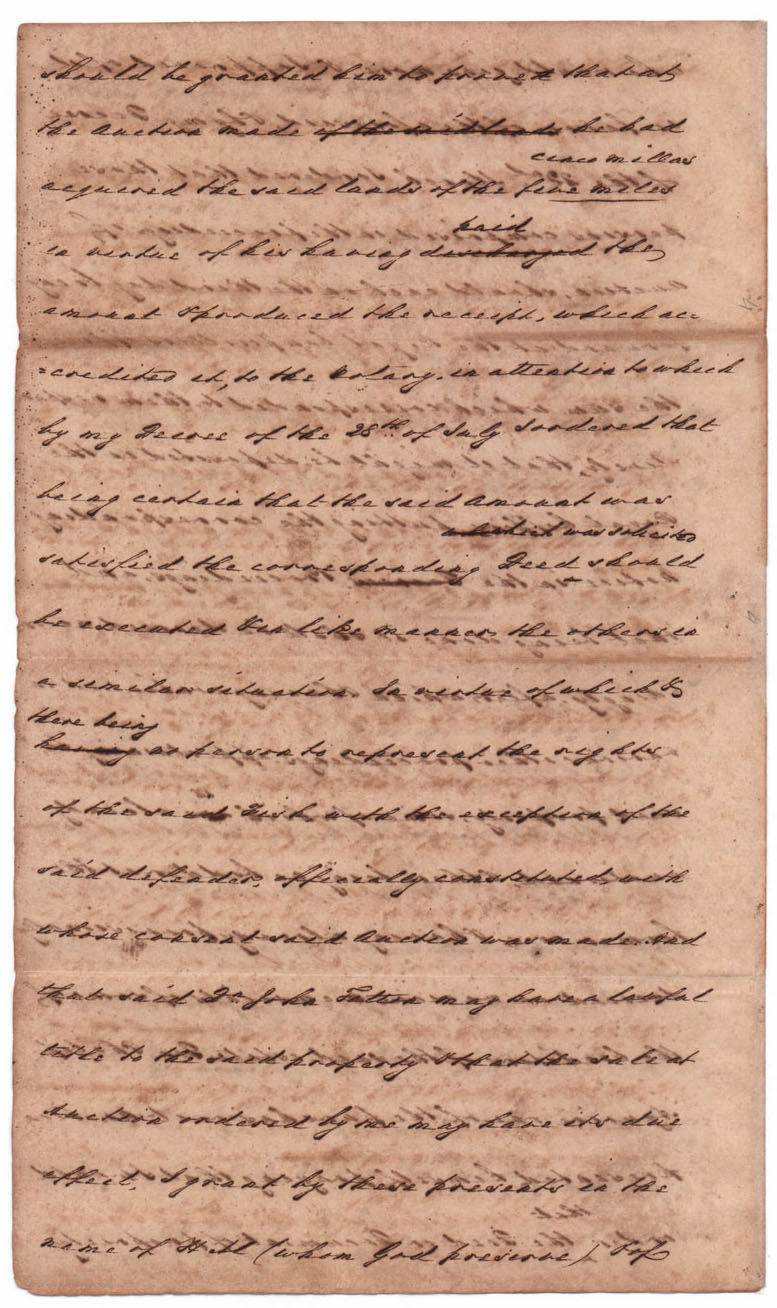 should be granted him to prove that at
the Auction made of the said lands he had
cinco millas
acquired the said lands of the five miles
paid
in virtue of his having discharged the
amount & produced the receipt, which ac=
=credited it, to the Notary, in attention to which
by my Decree of the 28th of July I ordered that
being certain that the said Amount was
which was solicited
satisfied the corresponding Deed should
be executed & in like manner the others in
a similar situation. In virtue of which &
there being
having no person to represent the rights
of the said Fish, with the exception of the
said defender, officially constituted, with
whose consent said Auction was made. And
that said Dn John Fatton may have a lawful
title to the said property & that the sale at
Auction ordered by me may have its due
effect, I grant by these presents in the
that
name of H M (whom God preserve) & of